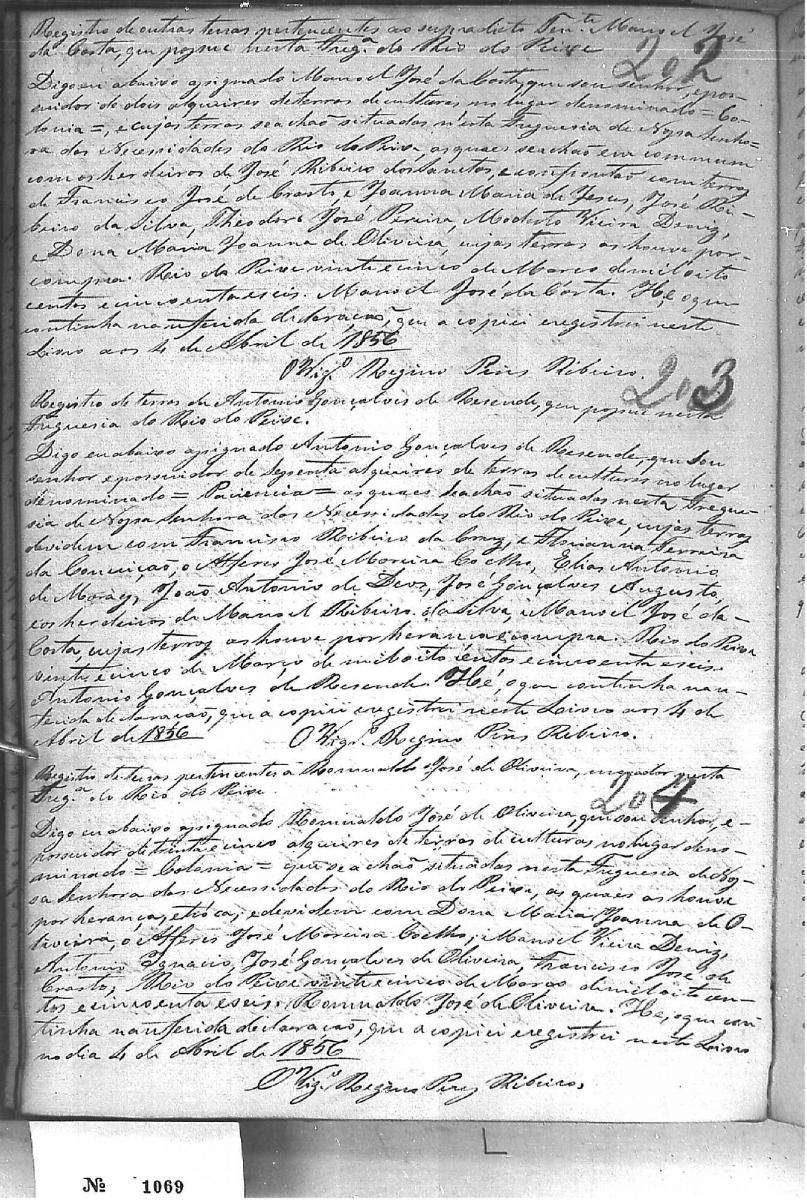 Registro de outras terras pertencentes ao supradicto Ten.te Manoel José
da Costa, que possue nesta Freg.a do Rio do Peixe
202
Digo eu abaixo assignado Manoel José da Costa, que sou senhor, e pos-
suidor de dois alqueires de terras de culturas no lugar denominado = Co-
lonia =, e cujas terras se achão situadas nésta Freguesia de Nossa Senho-
ra das Necessidades do Rio do Peixe, as quaes se achão em commum
com os herdeiros de José Ribeiro dos Santos, e confrontão com terras
de Francisco José de Crasto, e Joanna Maria de Jesus, José Ri-
beiro da Silva, Theodoro José Pereira, Modesto Vieira Deniz,
e Dona Maria Joanna de Oliveira, cujas terras as houve por-
compra. Rio do Peixe vinte e cinco de Março de mil oito
centos e cincoenta e seis. Manoel José da Costa. Hé, o que
continha na referida declaração, que a copiei e registrei neste
Livro aos 4 de Abril de 1856
O Vig.o Regino Pires Ribeiro
203
Registro de terras de Antonio Gonçalves de Resende, que possue nesta
Freguesia do Rio do Peixe.
Digo eu abaixo assignado Antonio Gonçalves de Resende, que sou
senhor e possuidor de sessenta alqueires de terras de culturas no lugar
denominado = Paciencia = as quaes se achão situadas nesta Fregue-
sia de Nossa Senhora das Necessidades do Rio do Peixe, cujas terras
devidem com Francisco Ribeiro da Cruz, e Ferreira
da Conceição, o Alferes José Moreira Coelho, Elias Antonio
de Moraes, João Antonio de Deos, José Gonçalves Augusto,
e os herdeiros de Manoel Ribeiro da Silva, e Manoel José da-
Costa, cujas terras as houve por herança e compra. Rio do Peixe
vinte e cinco de Março de mil oito centos e cincoenta e seis.
Antonio Gonçalves de Resende. Hé, o que continha na re-
ferida declaração, que a copiei e registrei neste Livro aos 4 de
Abril de 1856
O Vig.o Regino Pires Ribeiro.
Registro de terras pertencentes á Romualdo José de Oliveira, morador nesta
Freg.a do Rio do Peixe
204
Digo eu abaixo assignado Romualdo José de Oliveira, que sou senhor, e-
possuidor de trinta e cinco alqueires de terras de culturas no lugar deno-
minado = Colonia = que se achão situadas nesta Freguesia de Nos-
sa Senhora das Necessidades do Rio do Peixe, as quaes as houve
por herança, e tróca, e devidem com Dona Maria Joanna de O-
liveira, o Alferes José Moreira Coelho, Manoel Vieira Deniz,
Antonio Ignacio, José Gonçalves de Oliveira, Francisco José de
Crasto, Rio do Peixe vinte e cinco de Março de mil oito cen-
tos e cincoenta e seis. Romualdo José de Oliveira. Hé, o que con-
tinha na referida declaração, que a copiei e registrei neste Livro
no dia 4 de Abril de 1856
O Vig.o Regino Pires Ribeiro.
№ 1069